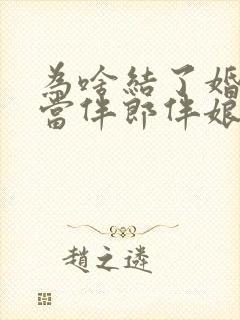 為啥結了婚
當伴郎伴娘
趙之遴